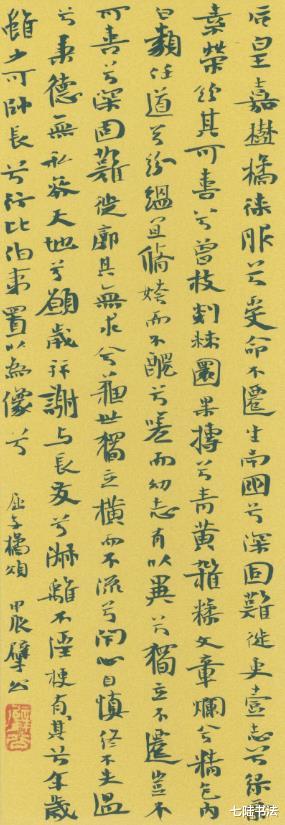 后皇嘉樹橘徠服兮受命不遷生南國兮深固難徙更壹志兮綠葉
素榮紛其可喜兮曾枝剡棘圜果摶兮青黃雜糅文章爛兮精色內
白類任道兮紛縕宜脩姱而不醜兮嗟而幼志有以異兮獨立不遷豈不
可喜兮深固難徙廓其無求兮蘇世獨立橫而不流兮閉心自慎終不失過
兮秉德無私參天地兮願歲并謝與長友兮淑離不淫梗有其兮年歲
雖少可師長兮行比伯夷置以為像兮
屈子橘頌 甲辰 公
七陆书法